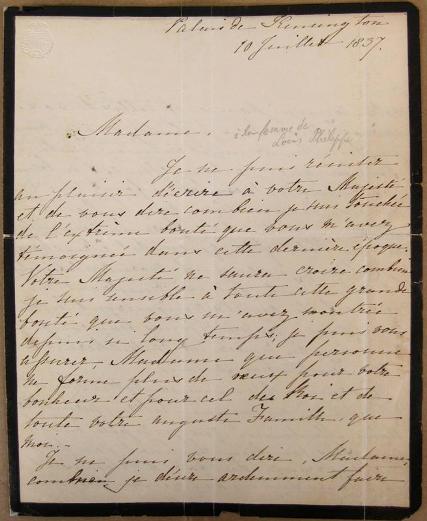 Palais de Kensington
10 Juillet 1837.
Madame,
à la femme de
Louis Philippe
Je ne puis résister
au plaisir d'écrire à votre Majesté
et de vous dire combien je suis touchée
de l'extrême bonté que vous m'avez
témoignée dans cette dernière époque.
Votre Majesté ne saura croire combien
je suis sensible à toute cette grande
bonté que vous m'avez montrée
depuis si long temps; je puis vous
assurer, Madame que personne
ne forme plus de vœux pour votre
bonheur et pour cel du Roi et de
toute votre auguste Famille que
moi.
Je ne puis vous dire, Madame,
combien je désire ardemment faire